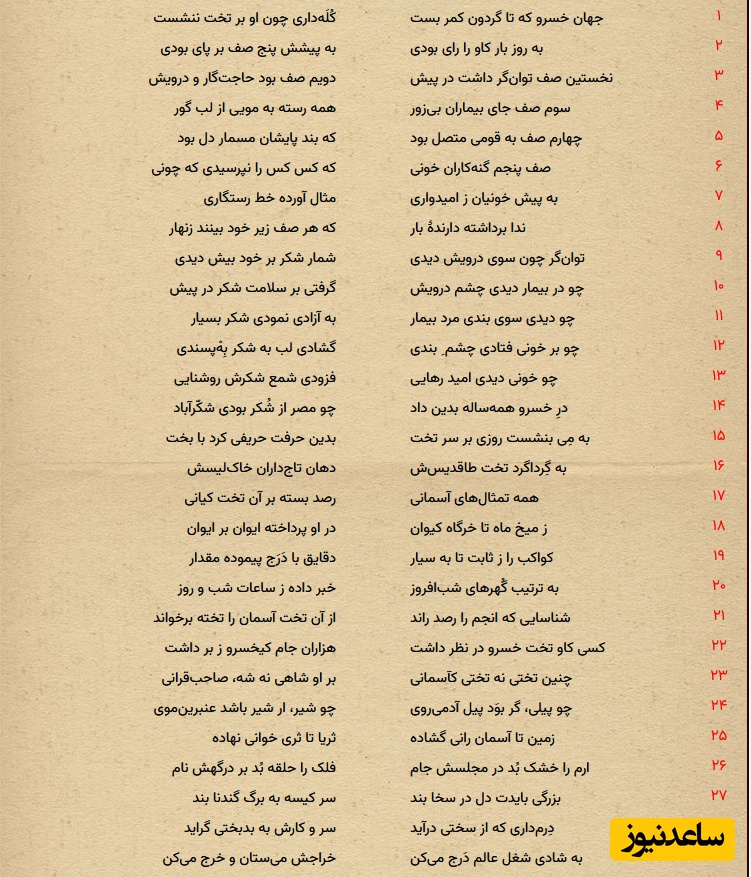 ۱ جهان خسرو که تا گردون کمر بست کُلَه‌داری چون او بر تخت ننشست
۲ به روز بار کاو را رای بودی به پیشش پنج صف بر پای بودی
۳ نخستین صف توان‌گر داشت در پیش دویم صف بود حاجت‌گار و درویش
۴ سوم صف جای بیماران بی‌زور همه رسته به مویی از لب گور
۵ چهارم صف به قومی متصل بود که بند پایشان مسمار دل بود
۶ صف پنجم گنه‌کاران خونی که کس کس را نپرسیدی که چونی
۷ به پیش خونیان ز امیدواری مثال آورده خط رستگاری
۸ ندا برداشته دارندهٔ بار که هر صف زیر خود بینند زنهار
۹ توان‌گر چون سوی درویش دیدی شمار شکر بر خود بیش دیدی
۱۰ چو در بیمار دیدی چشم درویش گرفتی بر سلامت شکر در پیش
۱۱ چو دیدی سوی بندی مرد بیمار به آزادی نمودی شکر بسیار
۱۲ چو بر خونی فتادی چشمِ بندی گشادی لب به شکر بِهْ‌پسندی
۱۳ چو خونی دیدی امید رهایی فزودی شمع شکرش روشنایی
۱۴ درِ خسرو همه‌ساله بدین داد چو مصر از شُکر بودی شکّرآباد
۱۵ به مِی بنشست روزی بر سر تخت بدین حرفت حریفی کرد با بخت
۱۶ به گِرداگرد تخت طاقدیس‌ش دهان تاج‌داران خاک‌لیسش
۱۷ همه تمثال‌های آسمانی رصد بسته بر آن تخت کیانی
۱۸ ز میخ ماه تا خرگاه کیوان در او پرداخته ایوان بر ایوان
۱۹ کواکب را ز ثابت تا به سیار دقایق با دَرَج پیموده مقدار
۲۰ به ترتیب گُهرهای شب‌افروز خبر داده ز ساعات شب و روز
۲۱ شناسایی که انجم را رصد راند از آن تخت آسمان را تخته برخواند
۲۲ کسی کاو تخت خسرو در نظر داشت هزاران جام کیخسرو ز بر داشت
۲۳ چنین تختی نه تختی کآسمانی بر او شاهی نه شه، صاحب‌قرانی
۲۴ چو پیلی، گر بوَد پیل آدمی‌روی چو شیر، ار شیر باشد عنبرین‌موی
۲۵ زمین تا آسمان رانی گشاده ثریا تا ثری خوانی نهاده
۲۶ ارم را خشک بُد در مجلسش جام فلک را حلقه بُد بر درگهش نام
۲۷ بزرگی بایدت دل در سخا بند سر کیسه به برگ گندنا بند
دِرم‌داری که از سختی درآید سر و کارش به بدبختی گراید
به شادی شغل عالم دَرج می‌کن خراجش می‌ستان و خرج می‌کن
ساعدنیوز